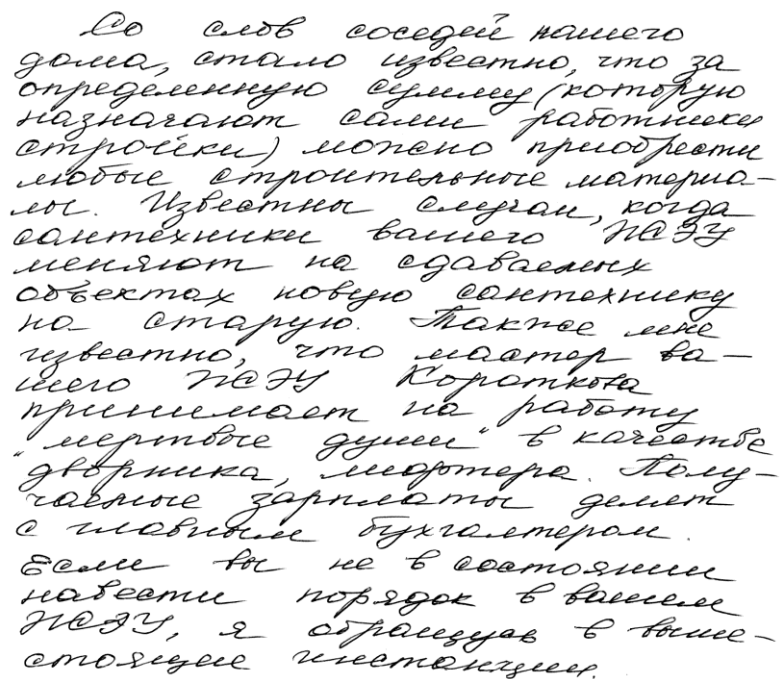 Со слов соседей нашего
дома, стало известно, что за
определенную сумму (которую
назначают сами работники
стройки) можно приобрести
любые строительные материа-
лы. Известны случаи, когда
сантехники вашего ЖСЭУ
меняют на сдаваемых
объектах новую сантехнику
на старую. Также мне
известно, что мастер ва-
шего ЖСЭУ Короткова
принимает на работу
"мертвые души" в качестве
дворника, лифтера. Полу-
чаемые зарплаты делят
с главным бухгалтером.
Если вы не в состоянии
навести порядок в вашем
ЖСЭУ, я обращусь в выше-
стоящие инстанции.